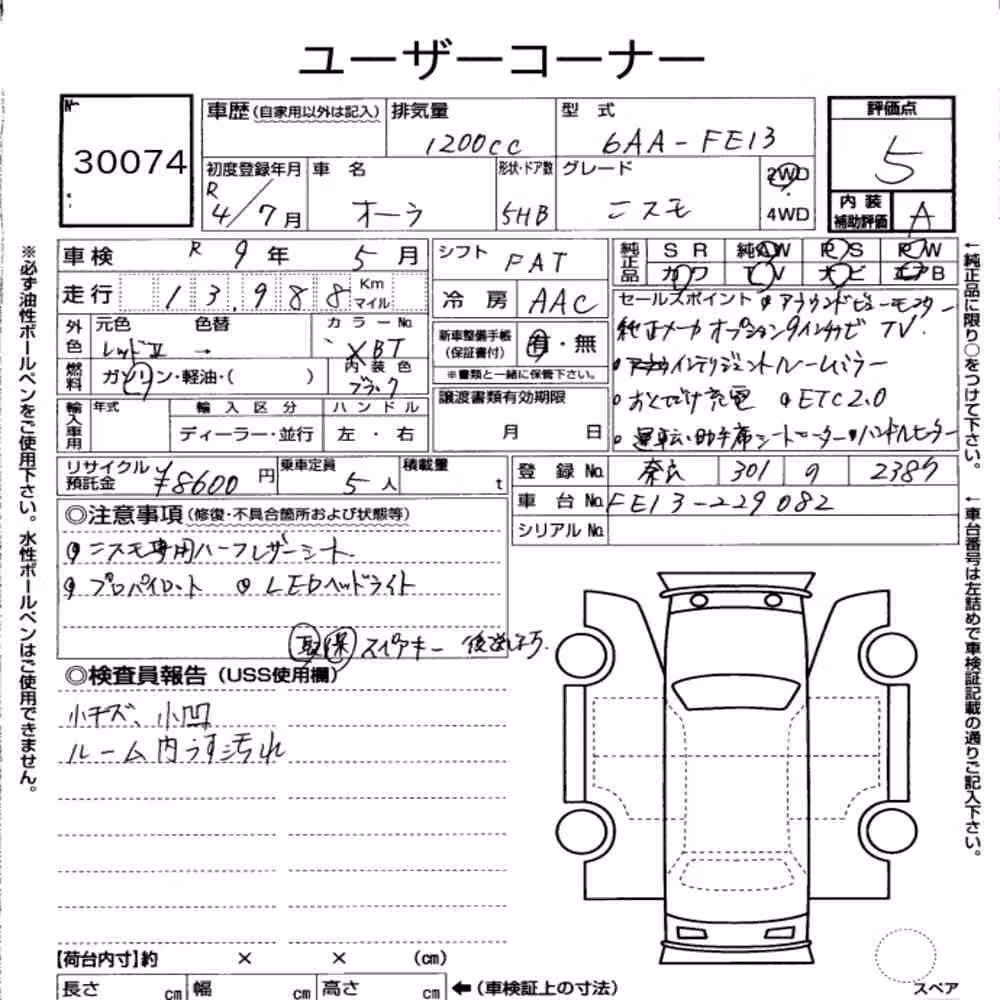 ユーザーコーナー
№
30074
車歴(自家用以外は記入)
排気量
1200cc
型 式
6AA-FE13
評価点
5
初度登録年月
R
4/7月
車 名
オーラ
形状・ドア数
5HB
グレード
ニスモ
2WD
4WD
内 装
補助評価
A
車検 R 9年 5月
走行 13,988 Km マイル
外色 元色 色替
レッドⅡ →
カラーNo.
XBT
燃料 ガソリン・軽油・( )
内 装 色
ブラック
輸入車用 年式 輸入区分 ハンドル
ディーラー・並行 左・右
シフト FAT
冷房 AAC
新車整備手帳
(保証書付) 有・無
※書類と一緒に保管下さい。
譲渡書類有効期限
月 日
純正品 SR 純AW PS PW
カワ TV ナビ エアB
セールスポイント アラウンドビューモニター
純正メーカオプション9インチナビ TV.
インテリジェントルームミラー
おくだけ充電 ETC2.0
運転・助手席シートヒーター ハンドルヒーター
リサイクル預託金 ¥8600円
乗車定員 5人
積載量 t
登 録 No. 奈良 301 の 2387
車 台 No. FE13-229082
シリアルNo.
◎注意事項(修復・不具合箇所および状態等)
ニスモ専用ハーフレザーシート
プロパイロット LEDヘッドライト
取 保 スペアキー 後送
◎検査員報告(USS使用欄)
小キズ、小凹
ルーム内うす汚れ
【荷台内寸】約 × × (cm)
長さ cm 幅 cm 高さ cm ←(車検証上の寸法)
スペア
※必ず油性ボールペンをご使用下さい。水性ボールペンはご使用できません。
←純正品に限り○をつけて下さい。
←車台番号は左詰めで車検証記載の通りご記入下さい。